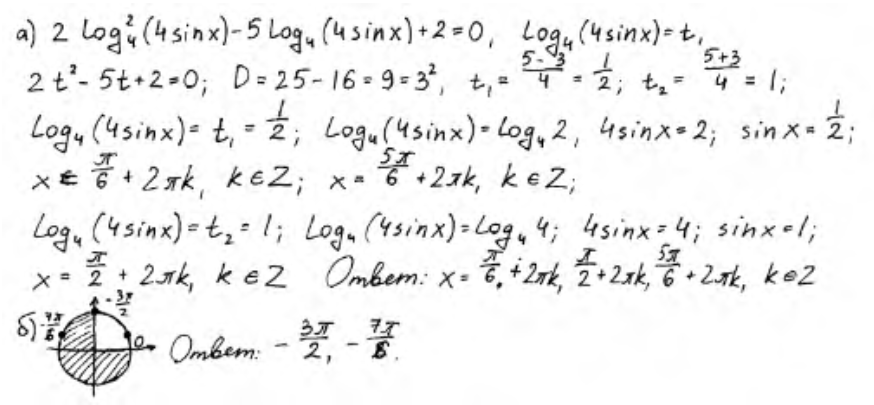 а) 2 log₄²(4sinx)-5log₄(4sinx)+2=0, log₄(4sinx)=t,
2t²-5t+2=0; D=25-16=9=3², t₁=(5-3)/4=1/2; t₂=(5+3)/4=1;
log₄(4sinx)=t₁=1/2; log₄(4sinx)=log₄2, 4sinx=2; sinx=1/2;
x=π/6+2πk, k∈Z; x=5π/6+2πk, k∈Z;
log₄(4sinx)=t₂=1; log₄(4sinx)=log₄4; 4sinx=4; sinx=1;
x=π/2+2πk, k∈Z Ответ: x=π/6+2πk, π/2+2πk, 5π/6+2πk, k∈Z
-3π/2
б) -7π/6 0 Ответ: -3π/2, -7π/6.